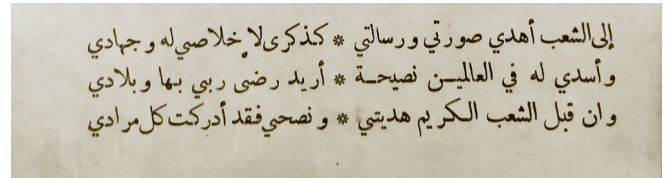 إلى الشعب أهدي صورتي ورسالتي * كذكرى لإخلاصي له وجهادي
وأسدي له في العالميــن نصيحــة * أريد رضى ربي بها وبلادي
وان قبل الشعب الكريم هديتي * ونصحي فقد أدركت كل مرادي